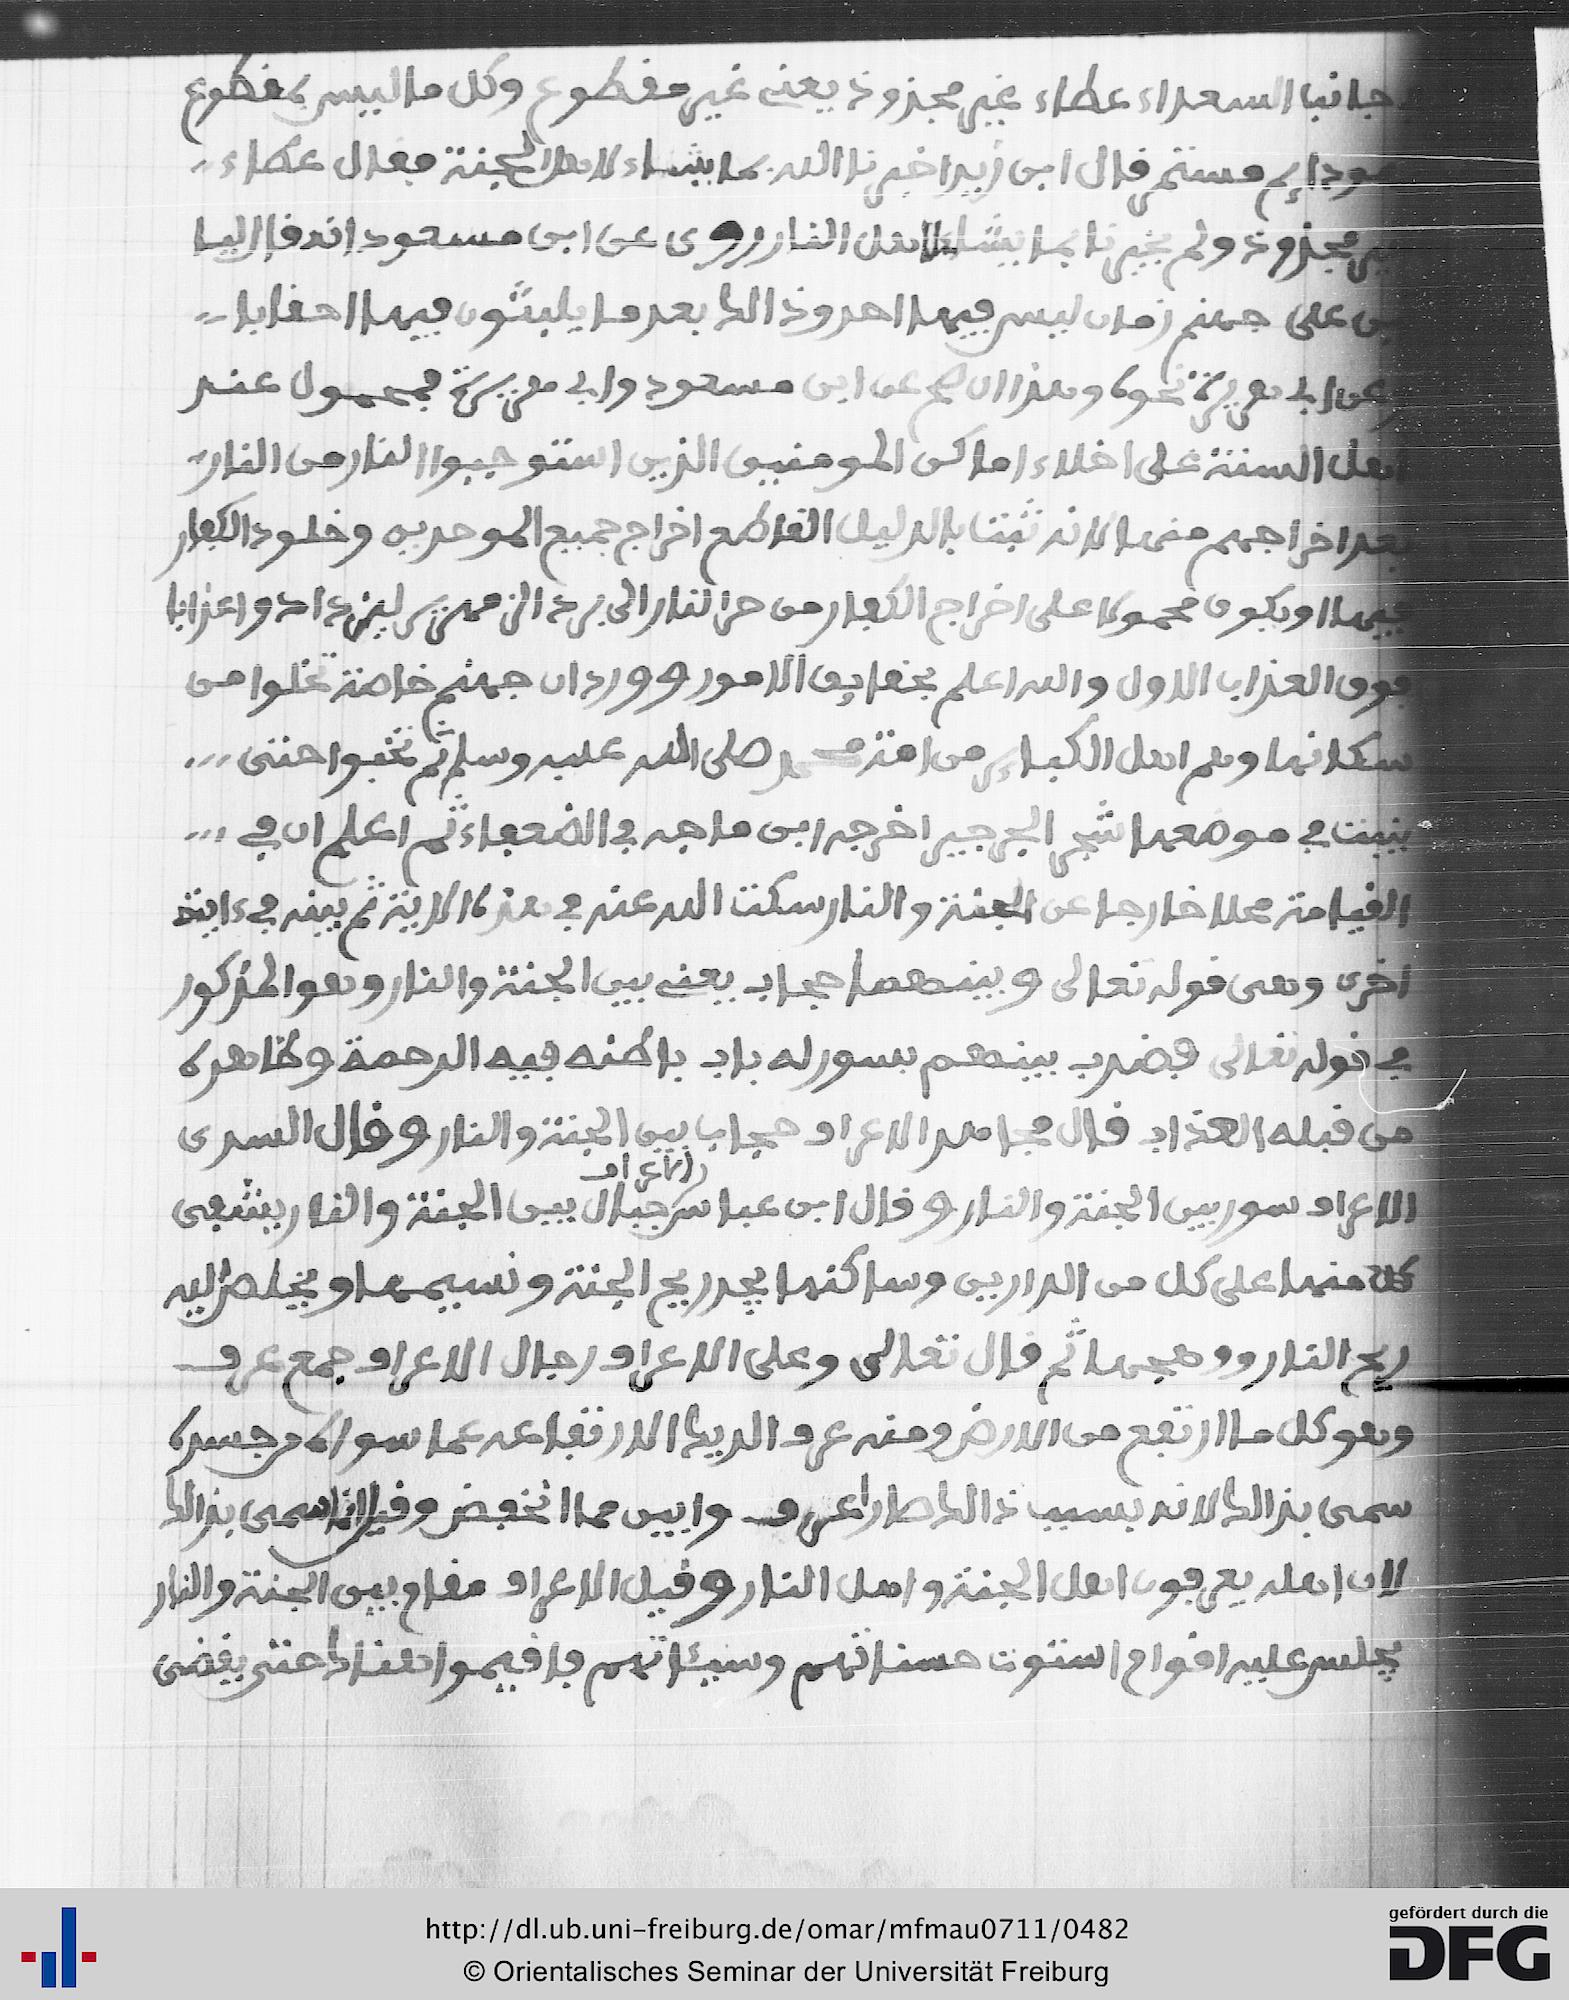 جانب السعداء عطاء غير مجذوذ يعني غير مقطوع وكل ما ليس بمقطوع
مستمر قال ابن زيد اخبرنا الله بما يشاء لاهل الجنة فقال عطاء
غير مجذوذ ولم يخبرنا بما يشاء لاهل النار روى عن ابن مسعود انه قال ليا
تين على جهنم زمان ليس فيها احد وذالك بعد ما يلبثون فيها احقابا
وعن ابي هريرة نحوه وهذا ان صح عن ابن مسعود وابي هريرة فمحمول عند
اهل السنة على اخلاء اماكن المومنين الذين استوجبوا النار من النار
بعد اخراجهم منها لانه ثبت بالدليل القاطع اخراج جميع الموحدين وخلود الكفار
فيها او يكون محمولا على اخراج الكفار من حر النار الى برد الزمهرير ليزدادوا عذابا
فوق العذاب الاول والله اعلم بحقايق الامور وورد ان جهنم خاصة تخلوا من
سكانها وهم اهل الكبائر من امة محمد صلى الله عليه وسلم ثم تخبوا حتى
ينبت في موضعها شجر الجرجير اخرجه ابن ماجه في الضعفاء ثم اعلم ان في
القيامة محلا خارجا عن الجنة والنار سكت الله عنه في هذه الاية ثم بينه في ءاية
اخرى وهي قوله تعالى وبينهما حجاب يعني بين الجنة والنار وهو المذكور
في قوله تعالى فضرب بينهم بسور له باب باطنه فيه الرحمة وظاهره
من قبله العذاب قال مجاهد الاعراف حجاب بين الجنة والنار وقال السدي
الاعراف سور بين الجنة والنار وقال ابن عباس الاعراف جبال بين الجنة والنار يشفى
كل منها على كل من الدارين وساكنها يجد ريح الجنة ونسيمها ويخلص اليه
ريح النار ووهجها ثم قال تعالى وعلى الاعراف رجال الاعراف جمع عرف
وهو كل ما ارتفع من الارض ومنه عرف الديك لارتفاعه عما سواه من جسده
سمى بذالك لانه بسبب ذالك صار اعرف وابين مما انخفض وقيل انما سمى بذالك
لان اهله يعرفون اهل الجنة واهل النار وقيل الاعراف مقام بين الجنة والنار
يجلس عليه اقوام استوت حسناتهم وسيئاتهم فاقيموا هنالك حتى يقضى
http://dl.ub.uni-freiburg.de/omar/mfmau0711/0482
© Orientalisches Seminar der Universität Freiburg
gefördert durch die
DFG